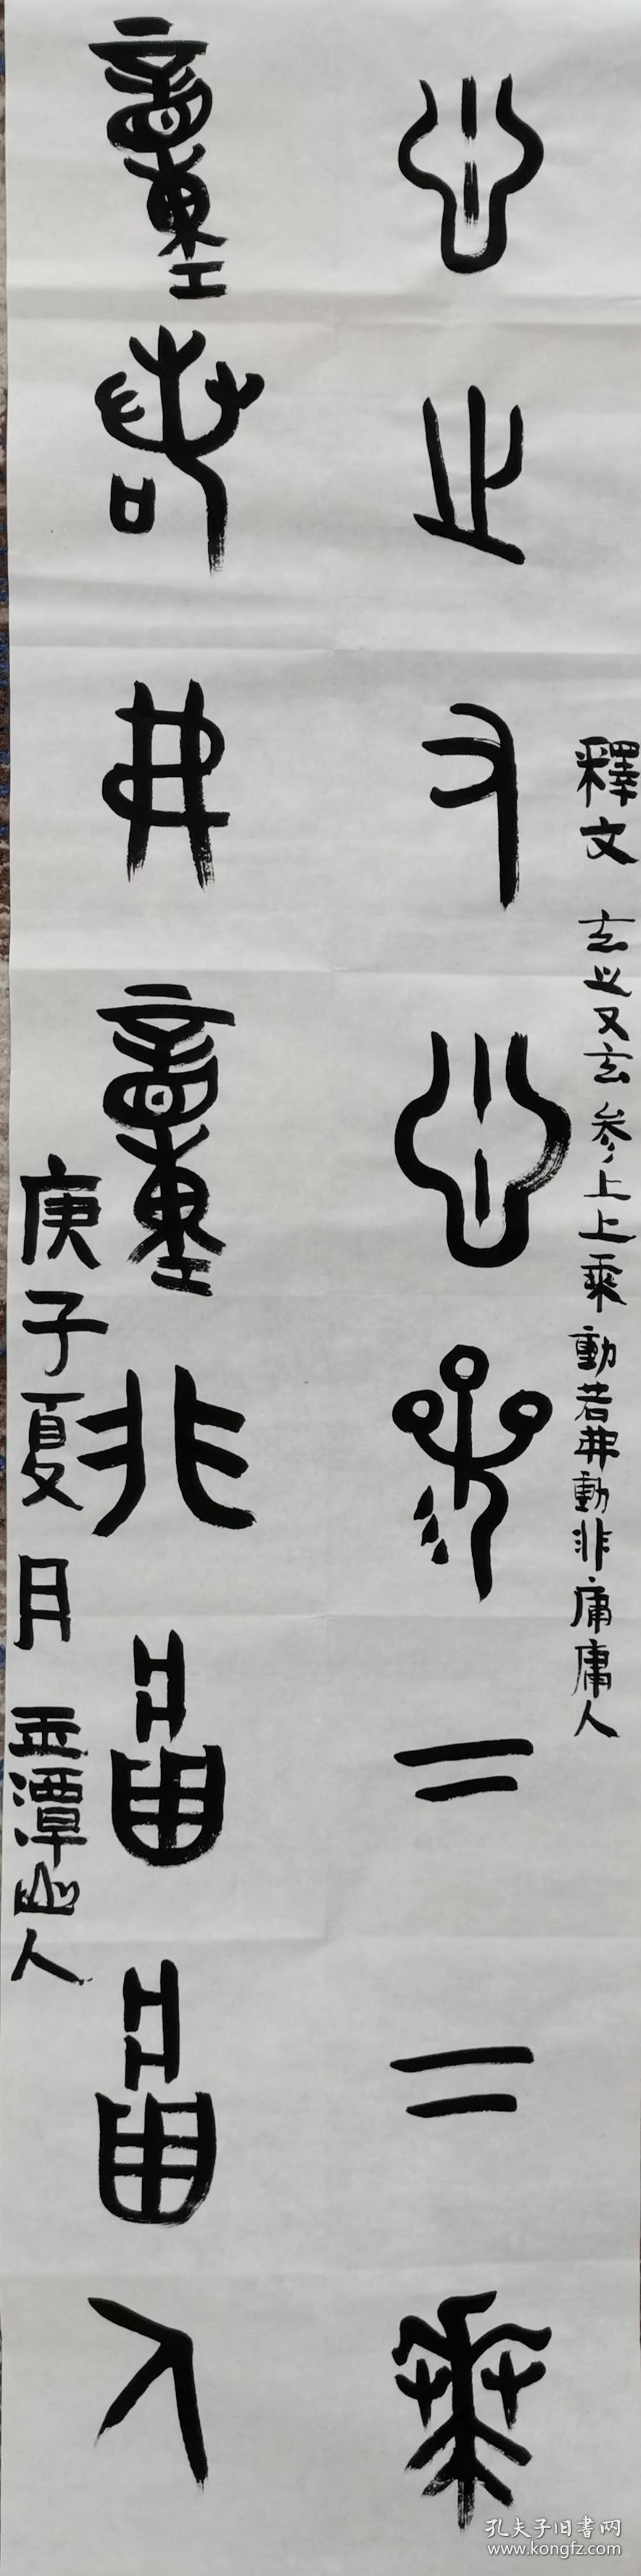 釋文 玄之又玄参上上乘動若弗動非庸庸人
玄之又玄參上上乘
動若弗動非庸庸人
庚子夏月 玉潭山人
孔夫子旧書网
www.kongfz.com